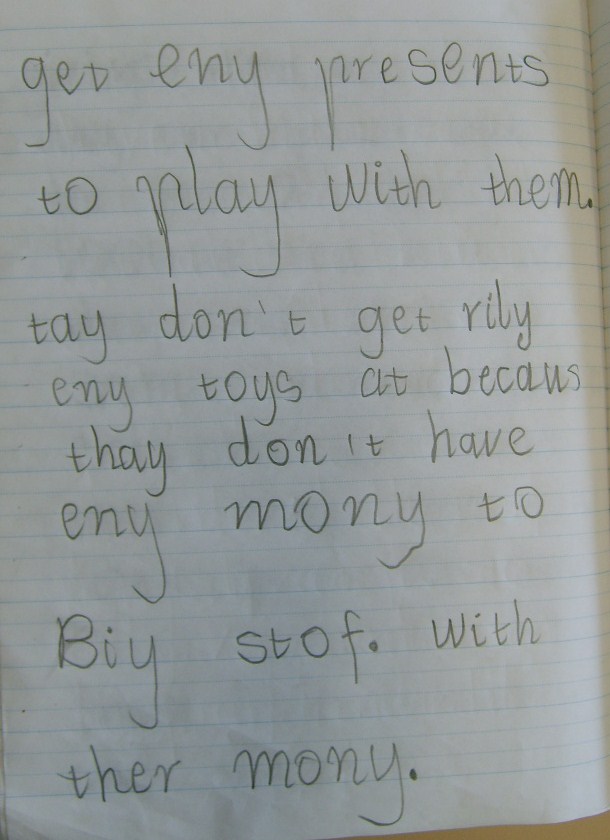 get eny presents
to play with them.
tay don't get rily
eny toys at becaus
thay don't have
eny mony to
Biy stof. with
ther mony.